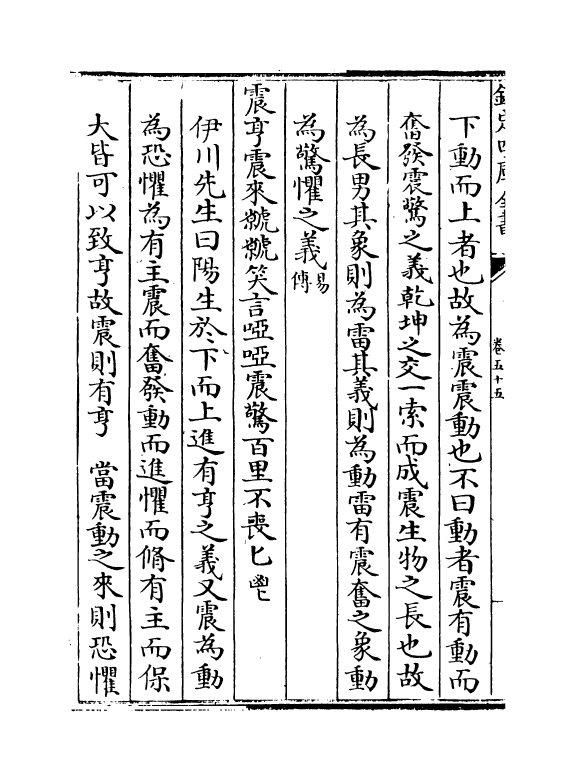 欽定四庫全書
卷五十五
下動而上者也故為震震動也不曰動者震有動而
奮發震驚之義乾坤之交一索而成震生物之長也故
為長男其象則為雷其義則為動雷有震奮之象動
為驚懼之義易傳
震亨震來虩虩笑言啞啞震驚百里不喪匕鬯
伊川先生曰陽生於下而上進有亨之義又震為動
為恐懼為有主震而奮發動而進懼而脩有主而保
大皆可以致亨故震則有亨 當震動之來則恐懼